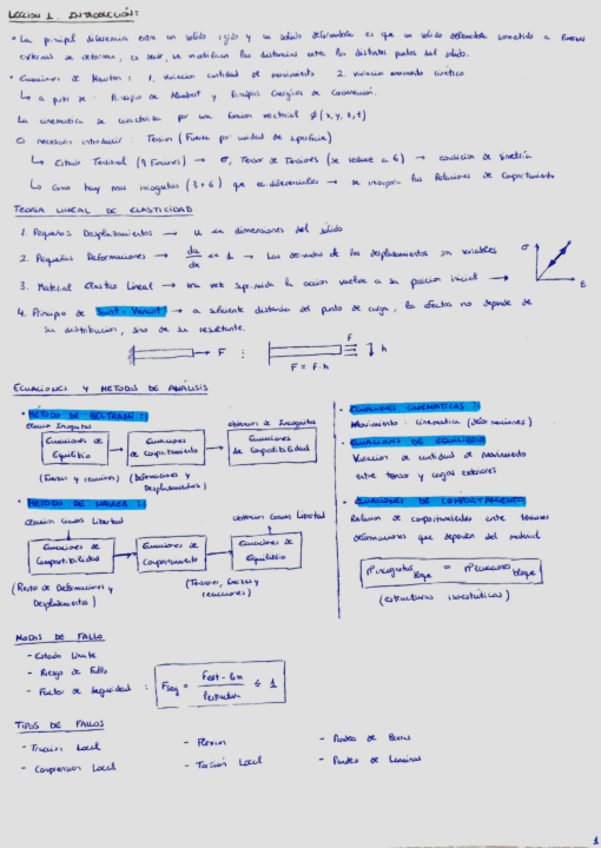 LECCION 1. INTRODUCCIÓN:
• La principal diferencia entre un solido rigido y un solido deformable es que un solido deformable sometido a fuerzas
externas se deforma, es decir, se modifican las distancias entre los distintos puntos del solido.
• Ecuaciones de Newton: 1. Variacion cantidad de movimiento 2. Variacion momento cinético
↳ a partir de: Principio de Alembert y Principios Energicos de Conservación.
La cinematica se caracteriza por una funcion vectorial Ø (x, y, z, t)
Es necesario introducir: Tension (Fuerza por unidad de superficie)
↳ Estado Tensional (9 Funciones) → σ, Tensor de Tensiones (se reduce a 6) → condicion de simetría
↳ Como hay mas incognitas (3+6) que ec. diferenciales → se incorpora las Relaciones de Comportamiento
TEORIA LINEAL DE ELASTICIDAD
1. Pequeños Desplazamientos → u << dimensiones del sólido
2. Pequeñas Deformaciones → du/dx << 1 → Las derivadas de los desplazamientos son variables
3. Material Elastico Lineal → una vez suprimida la accion vuelve a su posicion inicial →
σ
ε
4. Principio de Saint-Venant → a suficiente distancia del punto de carga, los efectos no depende de
su distribucion, sino de su resultante.
F : F h
F = F·h
ECUACIONES Y METODOS DE ANÁLISIS
• METODO DE BELTRAMI:
eleccion Incognitas
obtencion de Incognitas
Ecuaciones de Equilibrio → Ecuaciones de Comportamiento → Ecuaciones de Compatibilidad
(Fuerzas y reacciones) (Deformaciones y Desplazamientos)
• METODO DE NAVIER:
eleccion Grados Libertad
obtencion Grados Libertad
Ecuaciones de Compatibilidad → Ecuaciones de Comportamiento → Ecuaciones de Equilibrio
(Resto de Deformaciones y Desplazamientos)
(Tensiones, fuerzas y reacciones)
• ECUACIONES CINEMATICAS:
Movimiento: Cinematica (deformaciones)
• ECUACIONES DE EQUILIBRIO
Variacion de cantidad de movimiento
entre tensor y cargas exteriores
• ECUACIONES DE COMPORTAMIENTO
Relacion de comportamiento entre tensores
deformaciones que dependen del material
nº incognitas bloque = nº ecuaciones bloque
(estructuras isostáticas)
MODOS DE FALLO
- Estado Limite
- Riesgo de Fallo
- Factor de Seguridad : Fseg =
≤ 1
TIPOS DE FALLOS
- Traccion Local
- Flexion
- Pandeo de Barras
- Compresion Local
- Torsión Local
- Pandeo de Laminas
1